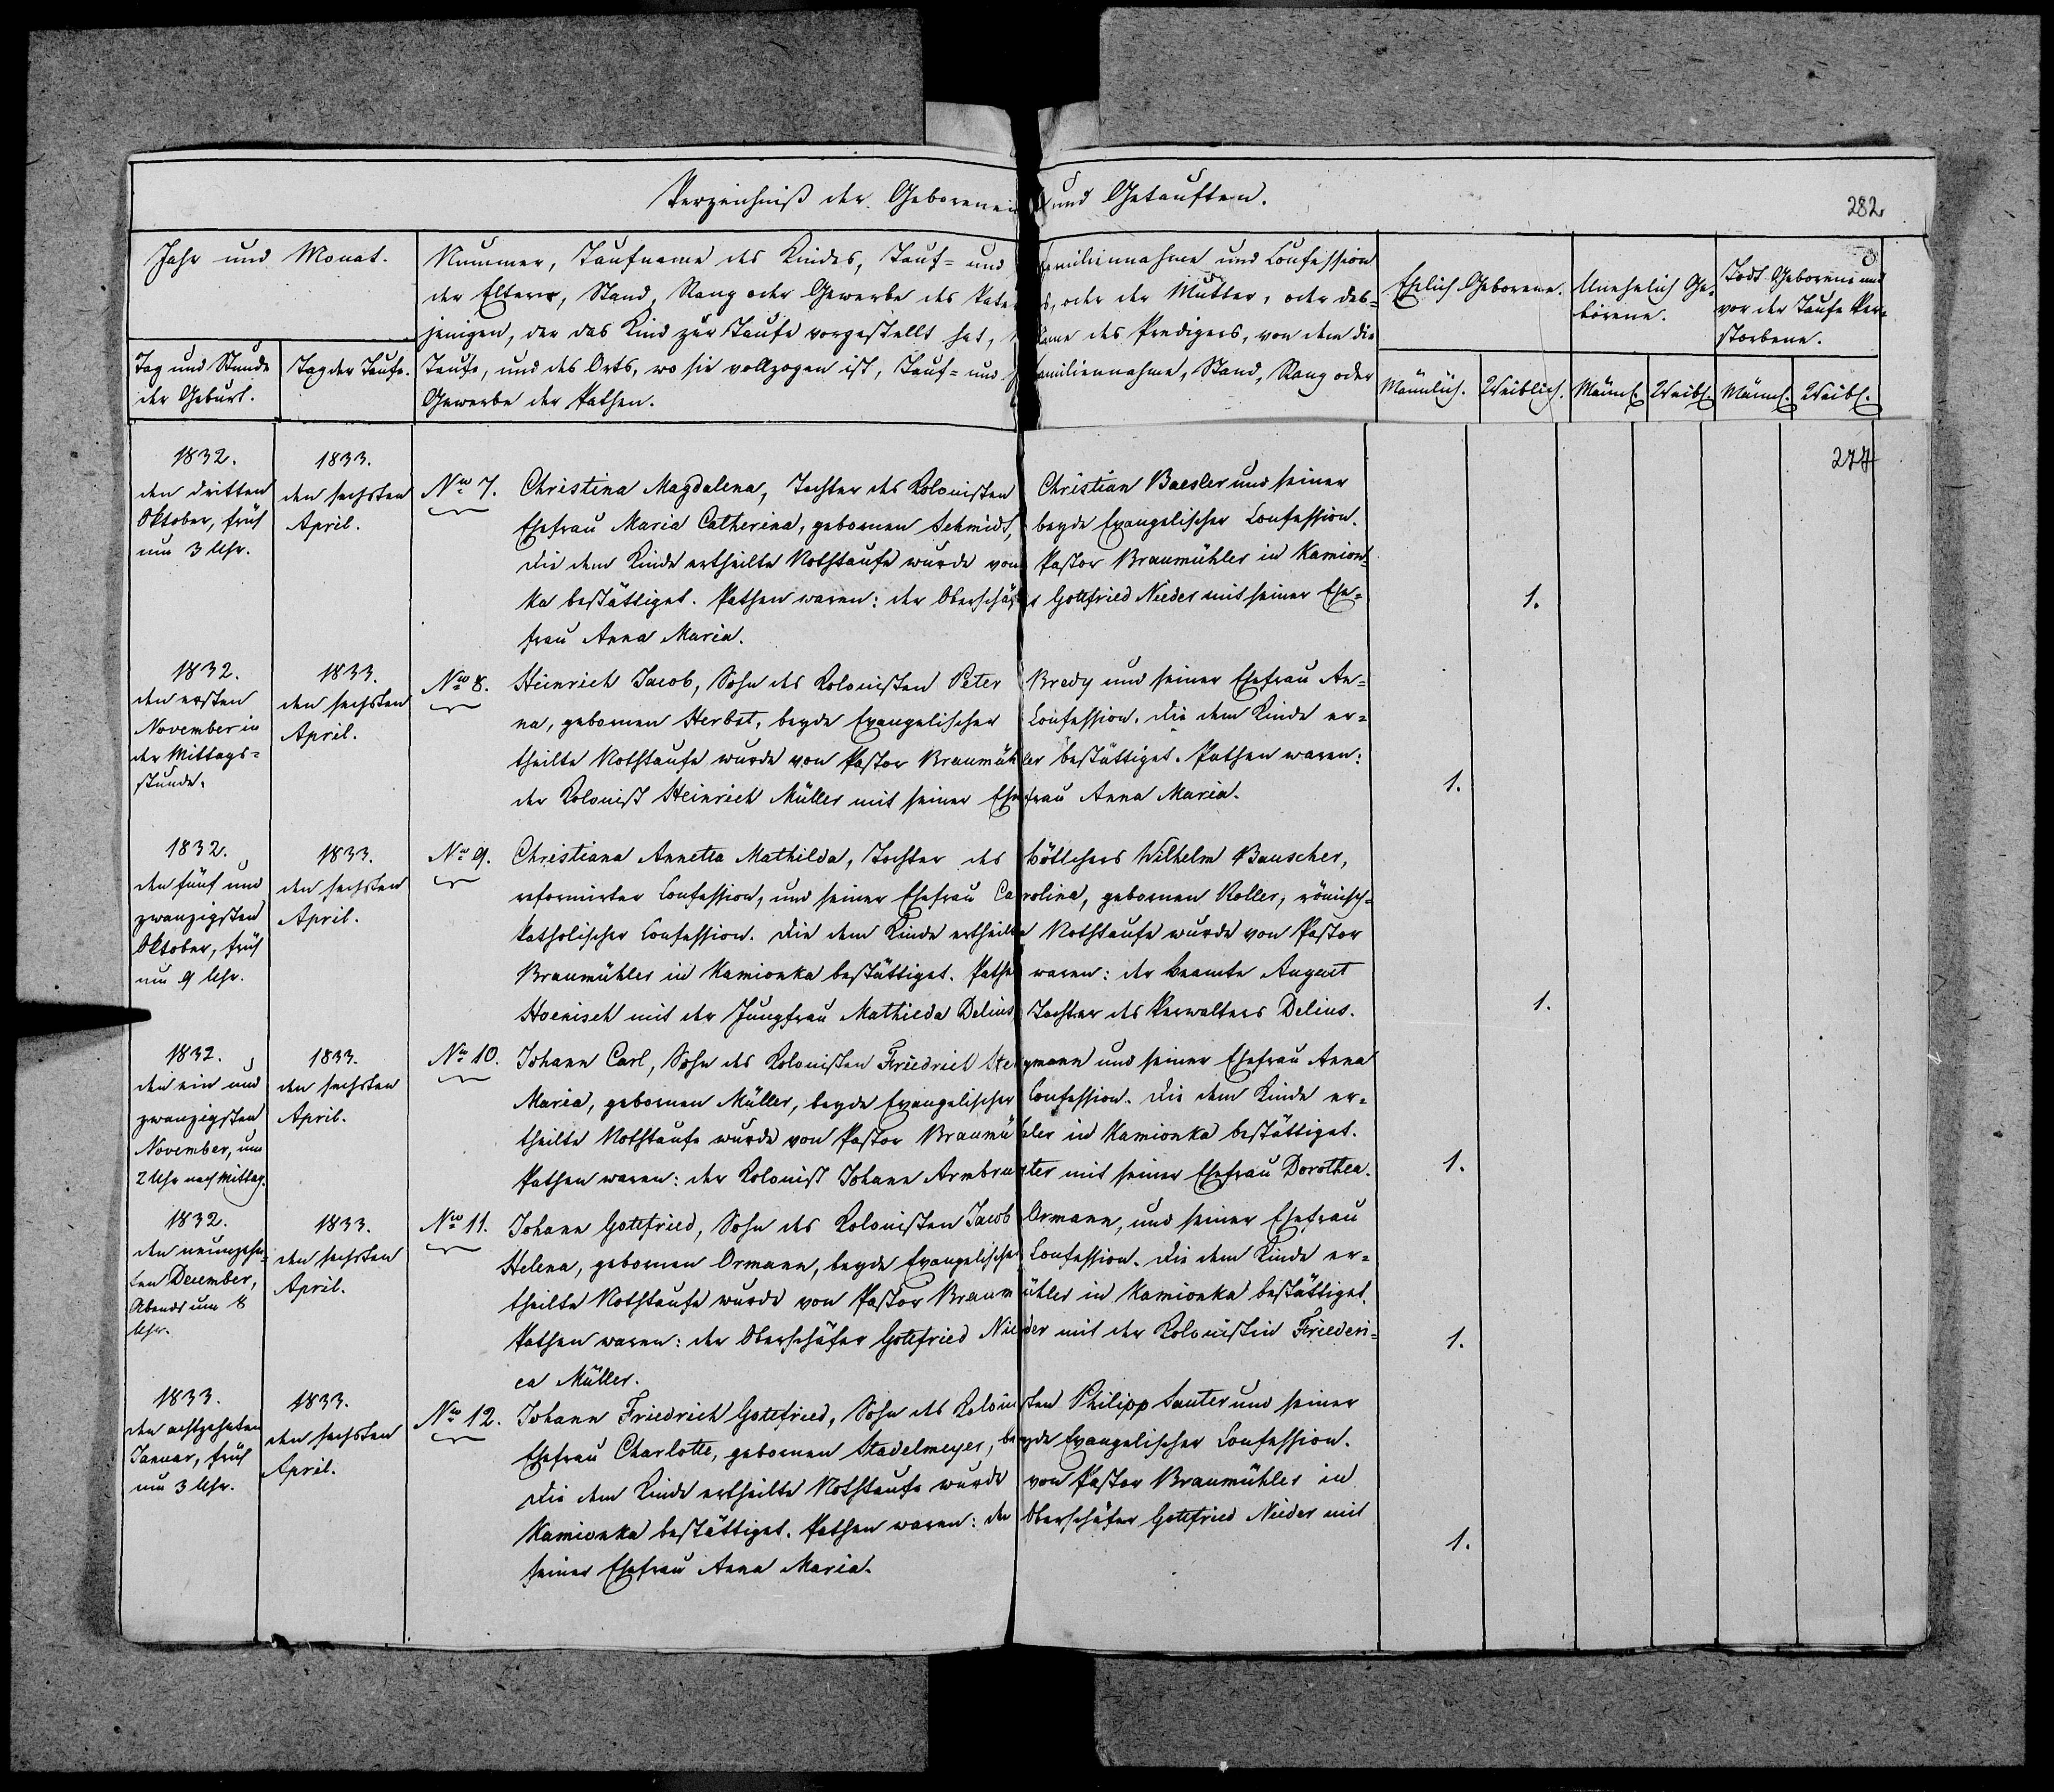 Verzeichniß der Geborenen und Getauften.
282
Jahr und Monat.
Tag und Stunde der Geburt.
Tag der Taufe.
Nummer, Taufname des Kindes, Tauf= und Familiennahme und Confession
der Eltern, Stand, Rang oder Gewerbe des Vaters, oder der Mutter, oder des=
jenigen, der das Kind zur Taufe vorgestellt hat, Name des Predigers, von dem die
Taufe, und des Orts, wo sie vollzogen ist, Tauf= und Familiennahme, Stand, Rang oder
Gewerbe der Pathen.
Ehlich Geborene.
Männlich. Weiblich.
Unehelich Ge=
borene.
Männl. Weibl.
Todt Geborene und
vor der Taufe Ver=
storbene.
Männl. Weibl.
277
1832.
den dritten
Oktober, früh
um 3 Uhr.
1833.
den sechsten
April.
No 7. Christina Magdalena, Tochter des Kolonisten Christian Baesler und seiner
Ehefrau Maria Catherina, gebornen Schmidt, beyde Evangelischer Confession.
Die dem Kinde ertheilte Nothtaufe wurde von Pastor Braumühler in Kamion=
ka bestättiget. Pathen waren: der Oberschäfer Gottfried Nieder mit seiner Ehe=
frau Anna Maria.
1.
1832.
den ersten
November in
der Mittags=
stunde.
1833.
den sechsten
April.
No 8. Heinrich Jacob, Sohn des Kolonisten Peter Bredy und seiner Ehefrau An=
na, gebornen Herbst, beyde Evangelischer Confession. Die dem Kinde er=
theilte Nothtaufe wurde von Pastor Braumühler bestättiget. Pathen waren:
der Kolonist Heinrich Müller mit seiner Ehefrau Anna Maria.
1.
1832.
den fünf und
zwanzigsten
Oktober, früh
um 9 Uhr.
1833.
den sechsten
April.
No 9. Christiana Annetta Mathilda, Tochter des Böttchers Wilhelm Bauscher,
reformirter Confession, und seiner Ehefrau Carolina, gebornen Koller, römisch=
katholischer Confession. Die dem Kinde ertheilte Nothtaufe wurde von Pastor
Braumühler in Kamionka bestättiget. Pathen waren: der Beamte August
Hoenisch mit der Jungfrau Mathilda Delius Tochter des Verwalters Delius.
1.
1832.
den ein und
zwanzigsten
November, um
2 Uhr nach Mittag.
1833.
den sechsten
April.
No 10. Johann Carl, Sohn des Kolonisten Friedrich Stegmann und seiner Ehefrau Anna
Maria, gebornen Müller, beyde Evangelischer Confession. Die dem Kinde er=
theilte Nothtaufe wurde von Pastor Braumühler in Kamionka bestättiget.
Pathen waren: der Kolonist Johann Armbruster mit seiner Ehefrau Dorothea.
1.
1832.
den neunzehn=
ten December,
Abends um 8
Uhr.
1833.
den sechsten
April.
No 11. Johann Gottfried, Sohn des Kolonisten Jacob Ormann, und seiner Ehefrau
Helena, gebornen Ormann, beyde Evangelischer Confession. Die dem Kinde er=
theilte Nothtaufe wurde von Pastor Braumühler in Kamionka bestättiget.
Pathen waren: der Oberschäfer Gottfried Nieder mit der Kolonistin Friederi=
ca Müller.
1.
1833.
den achtzehnten
Januar, früh
um 3 Uhr.
1833.
den sechsten
April.
No 12. Johann Friedrich Gottfried, Sohn des Kolonisten Philipp Sauter und seiner
Ehefrau Charlotte, gebornen Stadelmeyer, beyde Evangelischer Confession.
Die dem Kinde ertheilte Nothtaufe wurde von Pastor Braumühler in
Kamionka bestättiget. Pathen waren: der Oberschäfer Gottfried Nieder mit
seiner Ehefrau Anna Maria.
1.